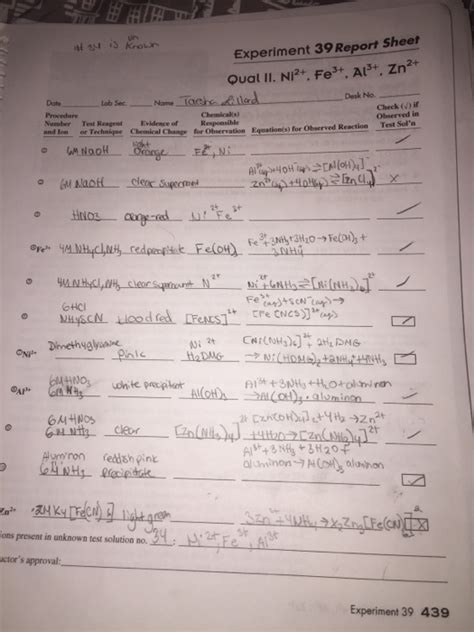 # 34 is unknown
Experiment 39 Report Sheet
Qual II. Ni2+, Fe3+, Al3+, Zn2+
Date Lab Sec. Name Desk No.
Procedure Number and Ion Test Reagent or Technique Evidence of Chemical Change Chemical(s) Responsible for Observation Equation(s) for Observed Reaction Check (✓) if Observed in Test Sol'n
6M NaOH light orange Fe, Ni
Al3+(aq) + 4OH-(aq) ⇌ [Al(OH)4]-
6M NaOH clear X
HNO3 orange-red Ni2+ Fe3+
Fe3+ 4M NH4Cl, NH3 red Fe(OH)3 Fe3+ + 3NH3 + 3H2O → Fe(OH)3 + 3NH4
4M NH4Cl, NH3 clear Ni2+ + 6NH3 ⇌ [Ni(NH3)6]2+
6HCl NH4SCN blood red [FeNCS]2+ Fe3+(aq) + SCN-(aq) → [Fe(NCS)]2+(aq)
Ni2+ pink Ni2+ H2DMG [Ni(NH3)6]2+ + 2H2DMG → Ni(HDMG)2 + 2NH4+ + 4NH3
Al3+ 6M HNO3 6M NH3 white Al(OH)3 Al3+ + 3NH3 + H2O + aluminon → Al(OH)3 . aluminon
6M HNO3 6M NH3 clear [Zn(NH3)4]2+ + 4H2O → [Zn(NH3)4]2+
Aluminon 6M NH3 reddish pink precipitate Al3+ + 3NH3 + 3H2O + aluminon → Al(OH)3 aluminon
Zn2+ K4[Fe(CN)6] light green X
ions present in unknown test solution no. 34 : Ni2+, Fe3+, Al3+
actor's approval:
Experiment 39 439